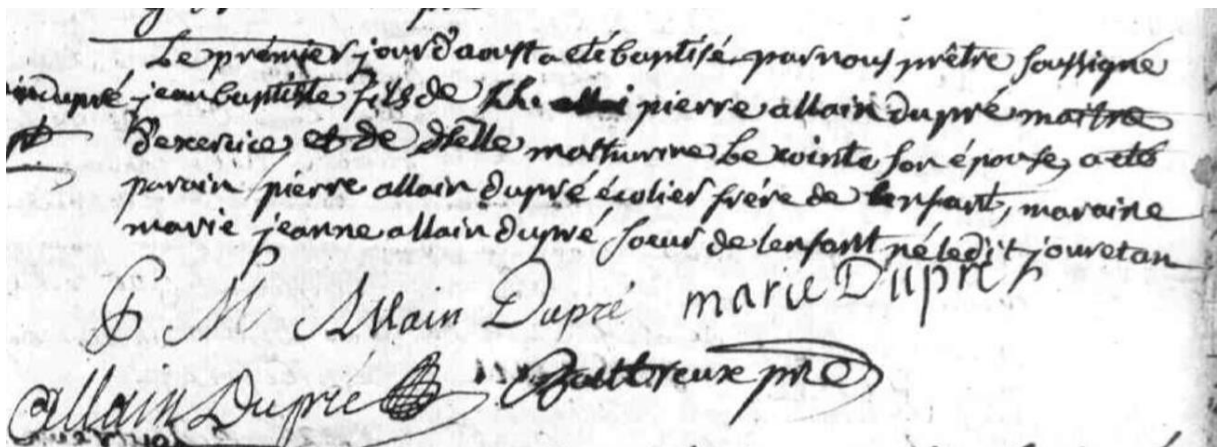 Le premier jour d'aoust a eté baptisé par nous prêtre soussigné
dupré jean baptiste fils de pierre allain dupré maitre
d'exercice et de dlle mathurine Le cointe son épouse, a eté
parain pierre allain dupré écolier frére de lenfant, maraine
marie jeanne allain dupré soeur de lenfant né ledit jour et an
P M Allain Dupré marie Dupré
allain Dupré ptre